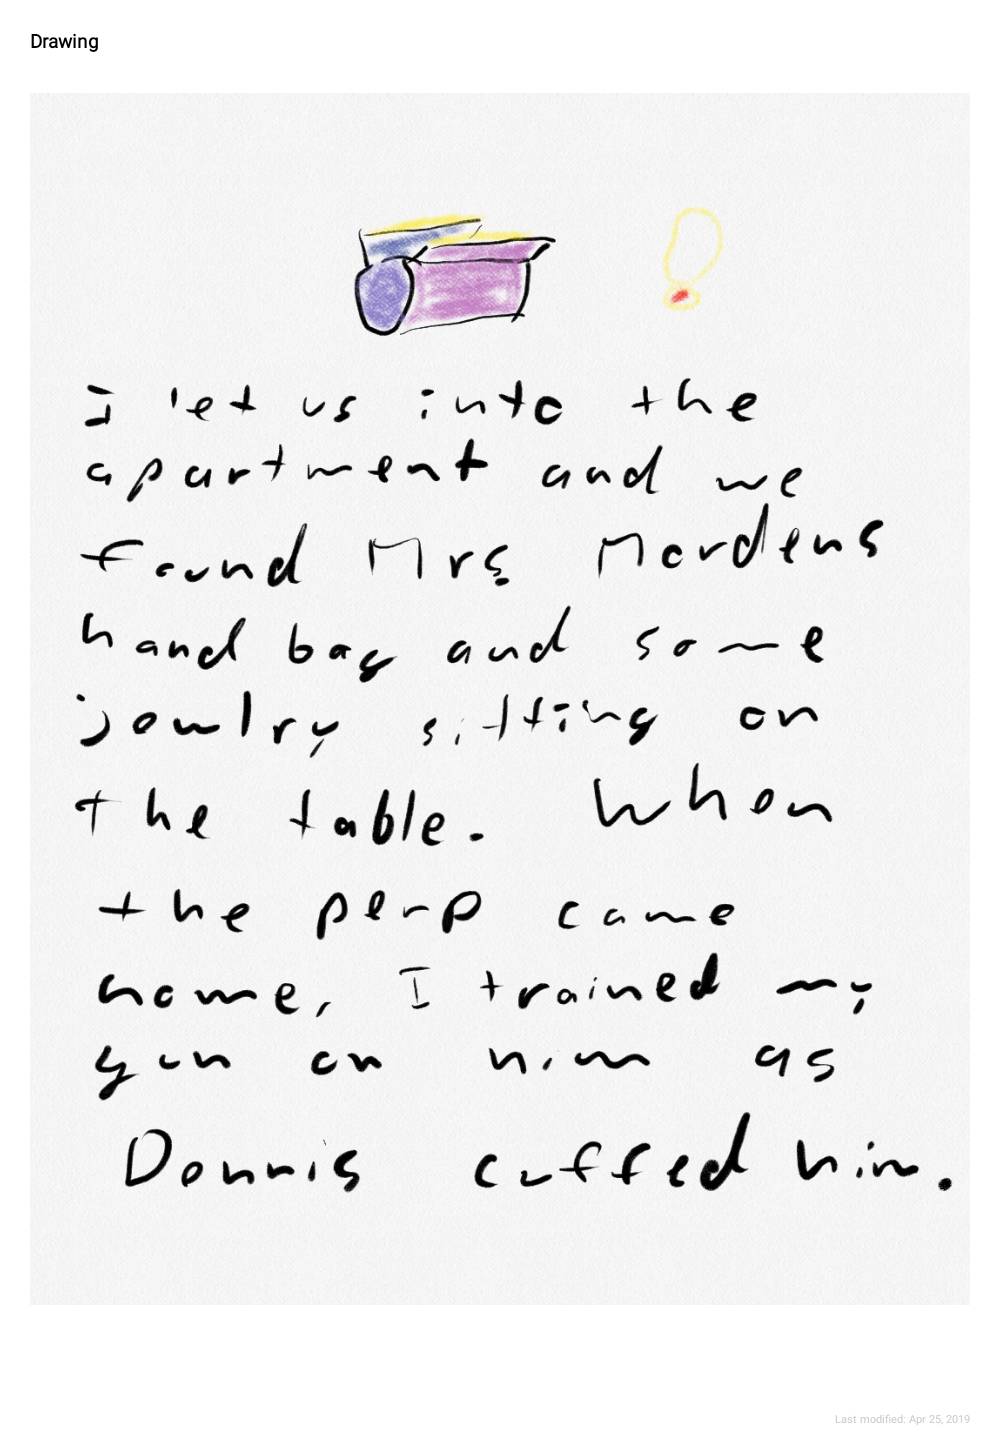 Drawing
I let us into the
apartment and we
found Mrs Mordens
hand bag and some
jowlry sitting on
the table. When
the perp came
home, I trained my
gun on him as
Dennis cuffed him.
Last modified: Apr 25, 2019